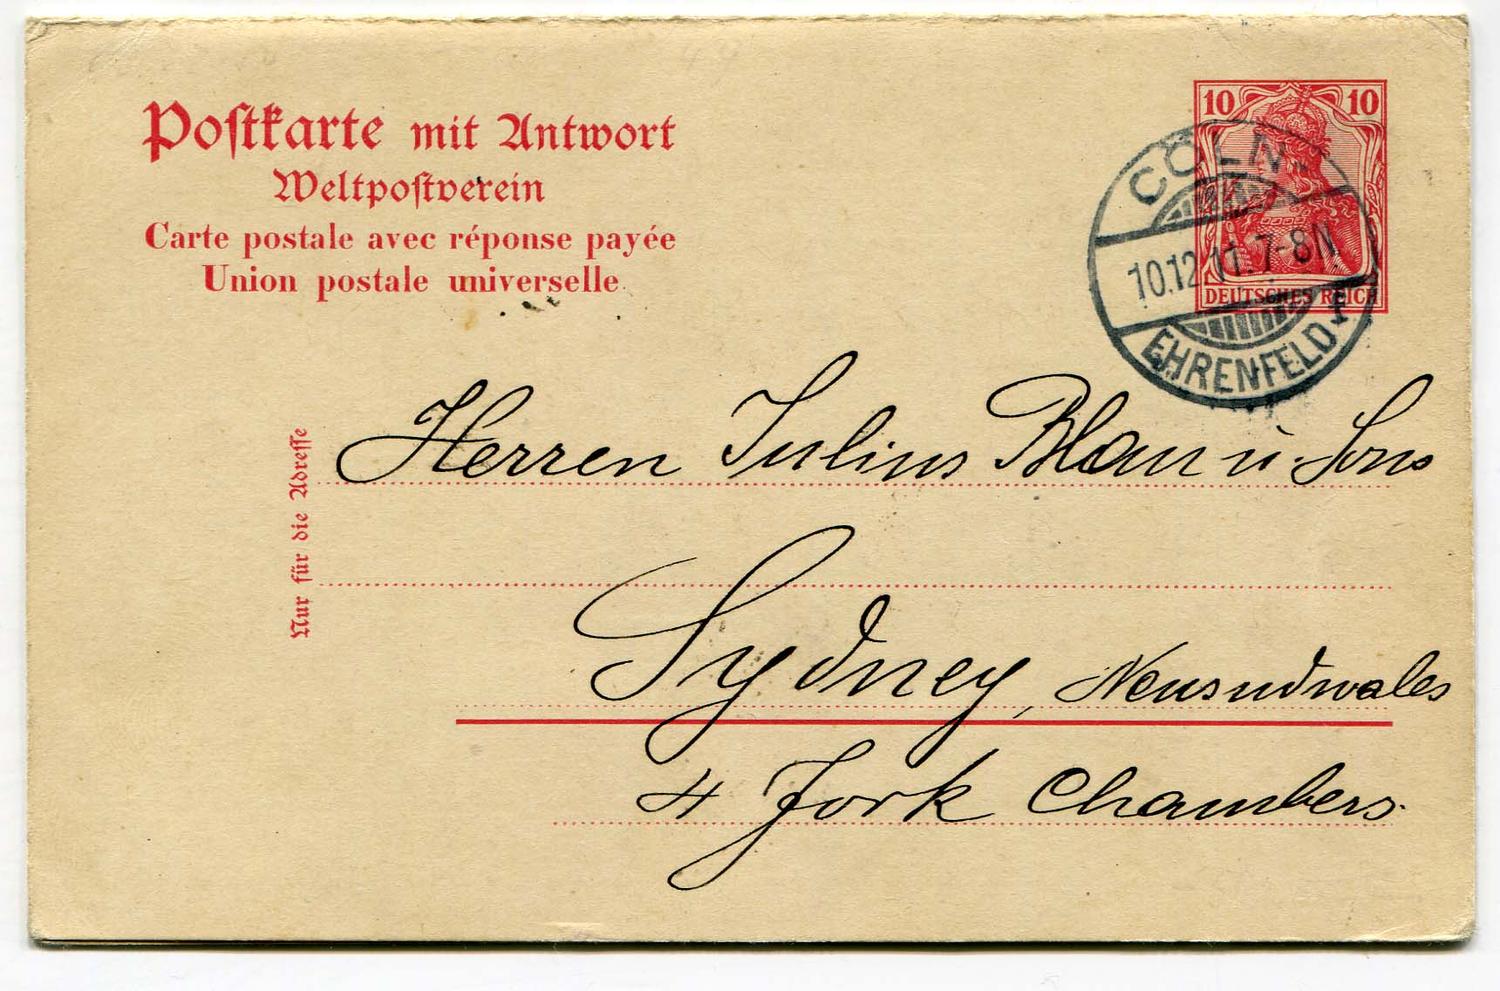 Postkarte mit Antwort
Weltpostverein
Carte postale avec réponse payée
Union postale universelle
10 10
DEUTSCHES REICH
CÖLN
10.12.11. 7-8N.
EHRENFELD 1
Nur für die Adresse
Herren Julius Blau u. Sons
Sydney, Neusudwales
4 York Chambers.